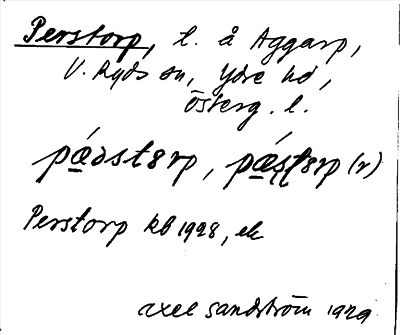 Perstorp, l. å Aggarp,
V. Ryds sn, Ydre hd,
Österg. l.
pǽɔstɜrp, pǽʂʈɜrp (r)
Perstorp kb 1928, ek
Axel Sandström 1929